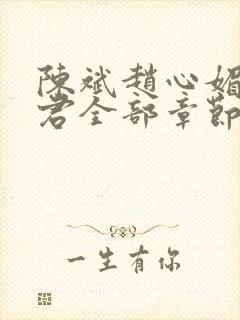 陳斌趙心媚
君全部章節
一生有你